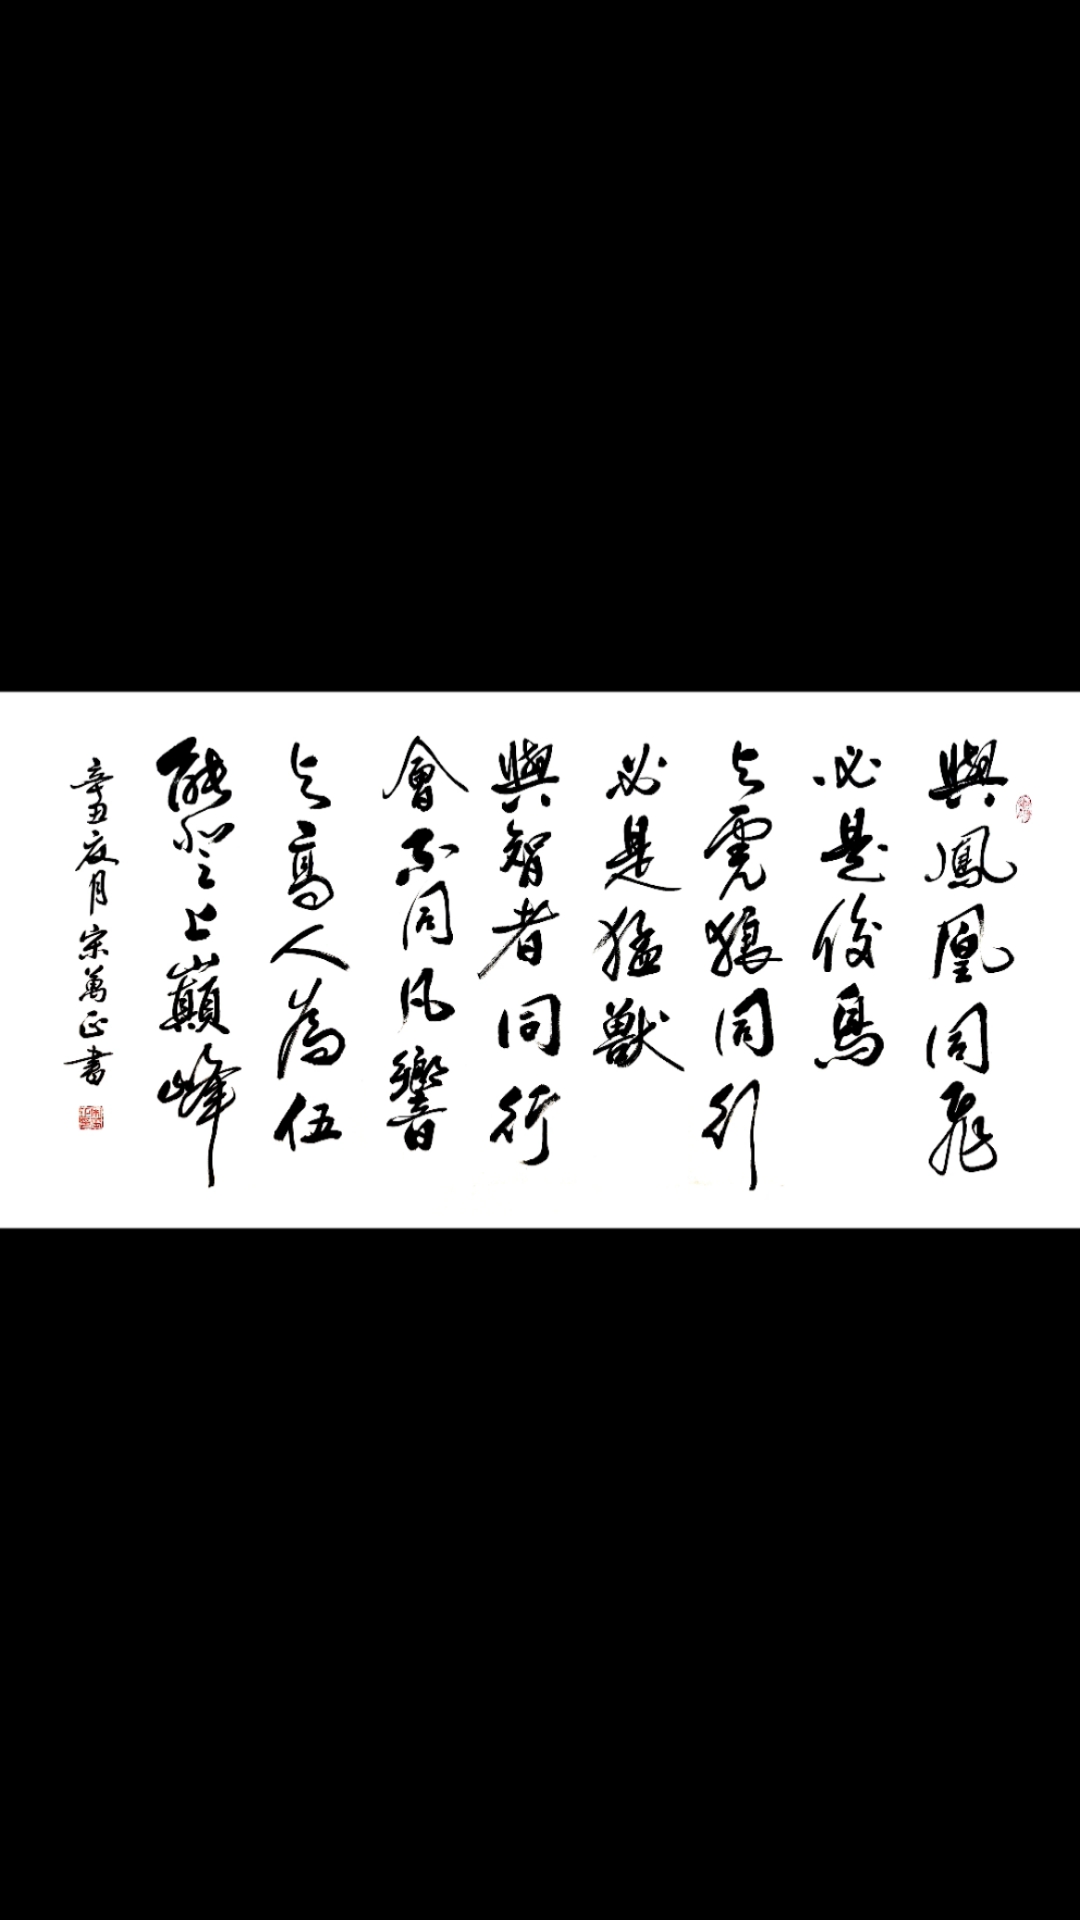 與鳳凰同飛
必是俊鳥
与虎狼同行
必是猛獸
與智者同行
會不同凡響
与高人為伍
能登上巔峰
辛丑夏月宋萬正書